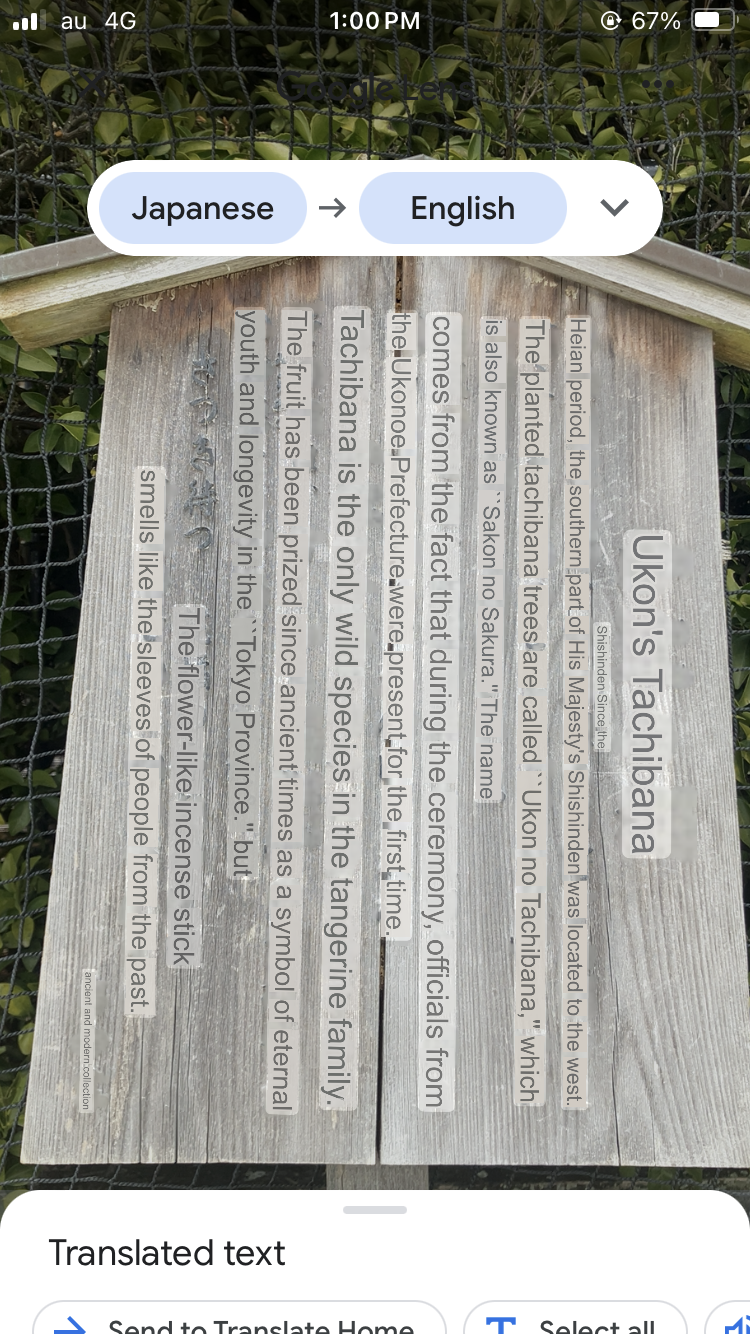 au 4G 1:00 PM 67%
Google Lens
Japanese → English
Ukon's Tachibana
Shishinden Since the
Heian period, the southern part of His Majesty's Shishinden was located to the west.
The planted tachibana trees are called ``Ukon no Tachibana,'' which
is also known as ``Sakon no Sakura.'' The name
comes from the fact that during the ceremony, officials from
the Ukonoe Prefecture were present for the first time.
Tachibana is the only wild species in the tangerine family.
The fruit has been prized since ancient times as a symbol of eternal
youth and longevity in the ``Tokyo Province.'' but
The flower-like incense stick
smells like the sleeves of people from the past.
ancient and modern collection
Translated text
Send to Translate Home
Select all